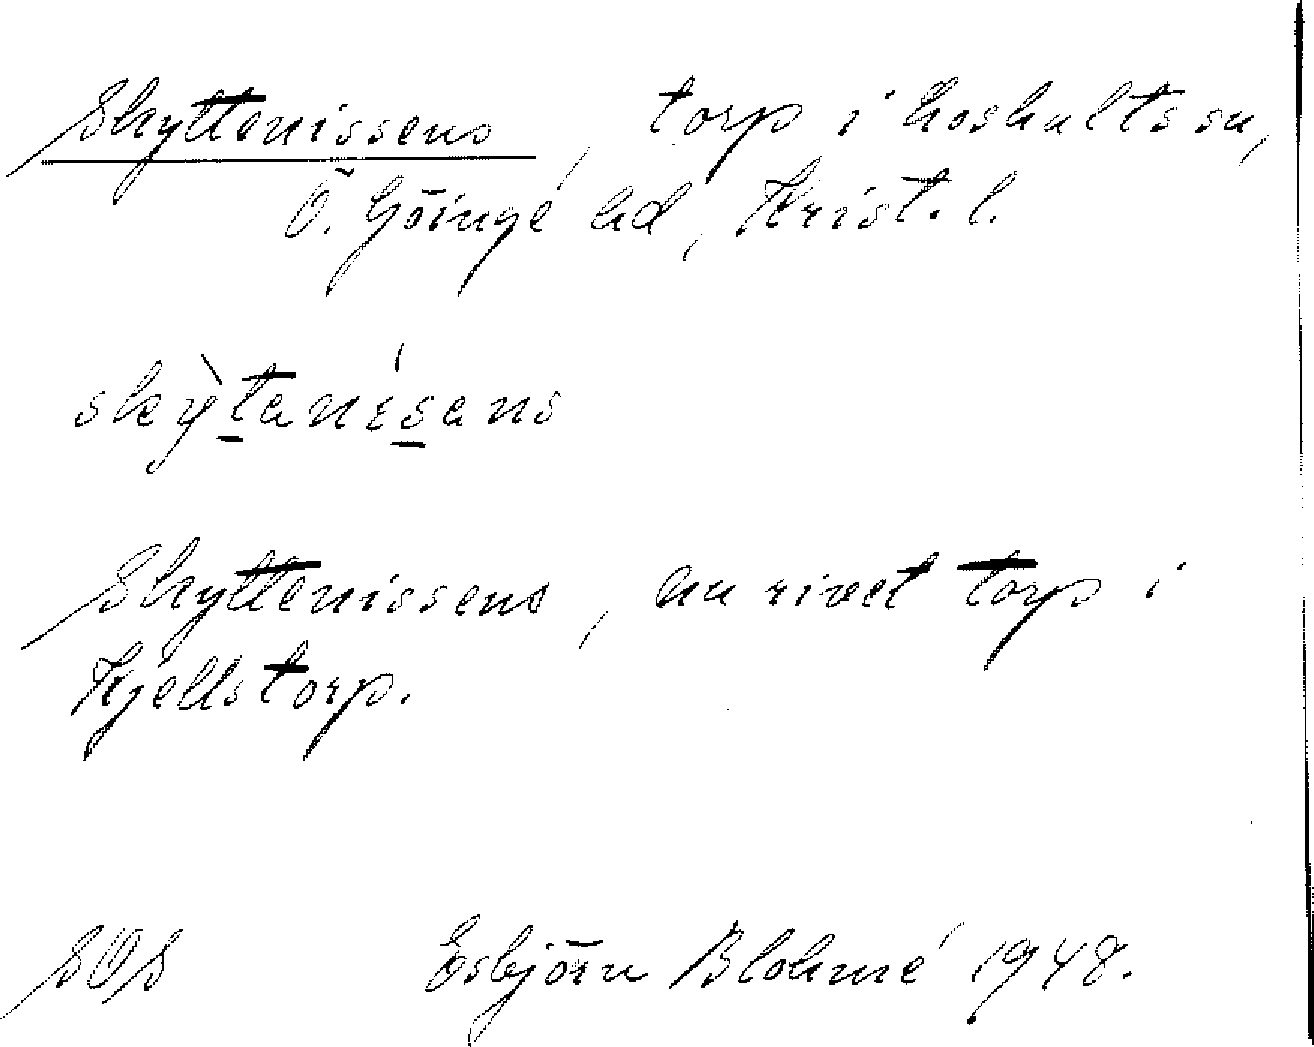 Skyttenissens, torp i Loshults sn,
Ö. Göinge hd, Krist. l.
skỳt̲anís̲ans
Skyttenissens, nu rivet torp i
Kjellstorp.
SOS Esbjörn Blohmé 1948.